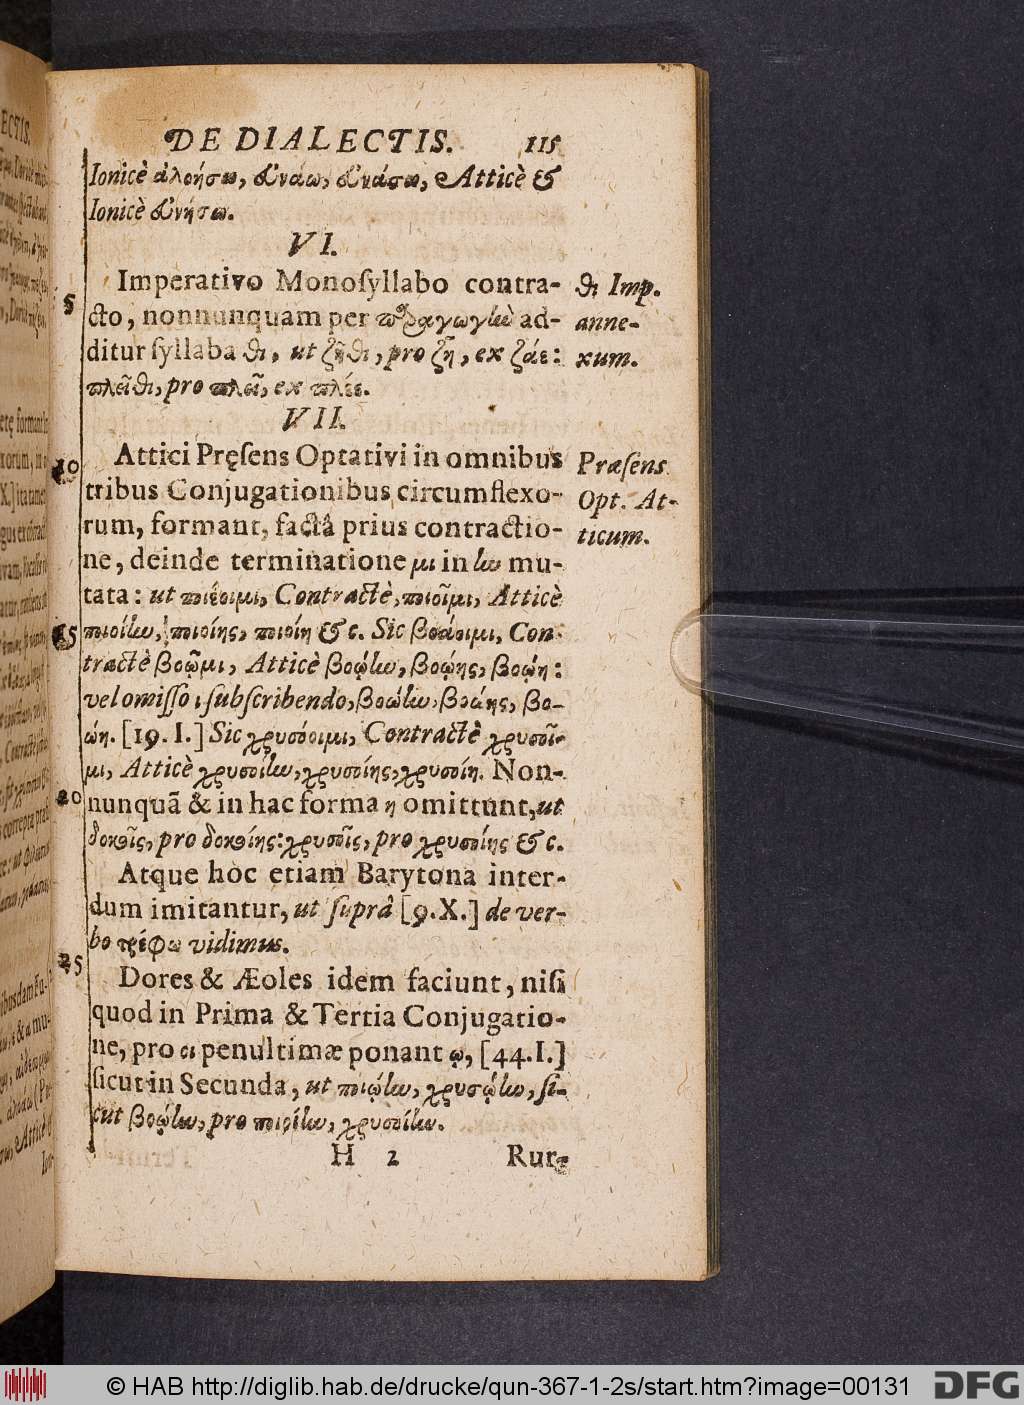 DE DIALECTIS. 115
Ionicè ἀλοήσω, δυνάω, δυνάσω, Atticè &
Ionicè δυνήσω.
VI.
Imperativo Monoſyllabo contra-
cto, nonnunquam per παραγωγὴν ad-
ditur ſyllaba θι, ut ζῆθι, pro ζῆ, ex ζάε:
πλεῖθι, pro πλεῖ, ex πλέε.
θι Imp.
anne-
xum.
VII.
Attici Pręſens Optativi in omnibus
tribus Conjugationibus circumflexo-
rum, formant, factâ prius contractio-
ne, deinde terminatione μι in ην mu-
tata: ut ποιέοιμι, Contractè, ποιοῖμι, Atticè
ποιοίην, ποιοίης, ποιοίη &c. Sic βοάοιμι, Con-
tractè βοῷμι, Atticè βοῴην, βοῴης, βοῴη:
vel omiſſo ι ſubſcribendo, βοώην, βοώης, βο-
ώη. [19. I.] Sic χρυσόοιμι, Contractè χρυσοῖ-
μι, Atticè χρυσοίην, χρυσοίης, χρυσοίη. Non-
nunquã & in hac forma η omittunt, ut
δοκοῖς, pro δοκοίης: χρυσοῖς, pro χρυσοίης &c.
Præſens
Opt. At-
ticum.
Atque hoc etiam Barytona inter-
dum imitantur, ut ſuprà [9. X.] de ver-
bo τρέφω vidimus.
Dores & Æoles idem faciunt, niſi
quod in Prima & Tertia Conjugatio-
ne, pro οι penultimæ ponant ῳ, [44. I.]
ſicut in Secunda, ut ποιῴην, χρυσῴην, ſi-
cut βοῴην, pro ποιοίην, χρυσοίην.
H 2 Rur-
5
10
15
20
25
© HAB http://diglib.hab.de/drucke/qun-367-1-2s/start.htm?image=00131
DFG